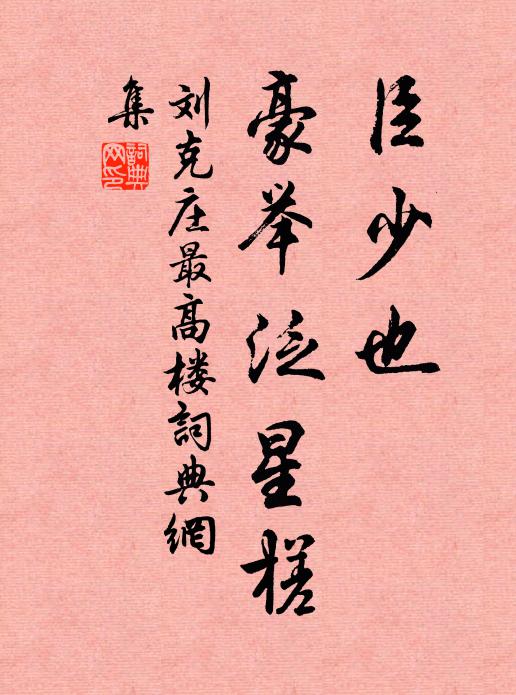 臣少也
豪举泛星槎
刘克庄最高楼詞典網
集
詞典网印